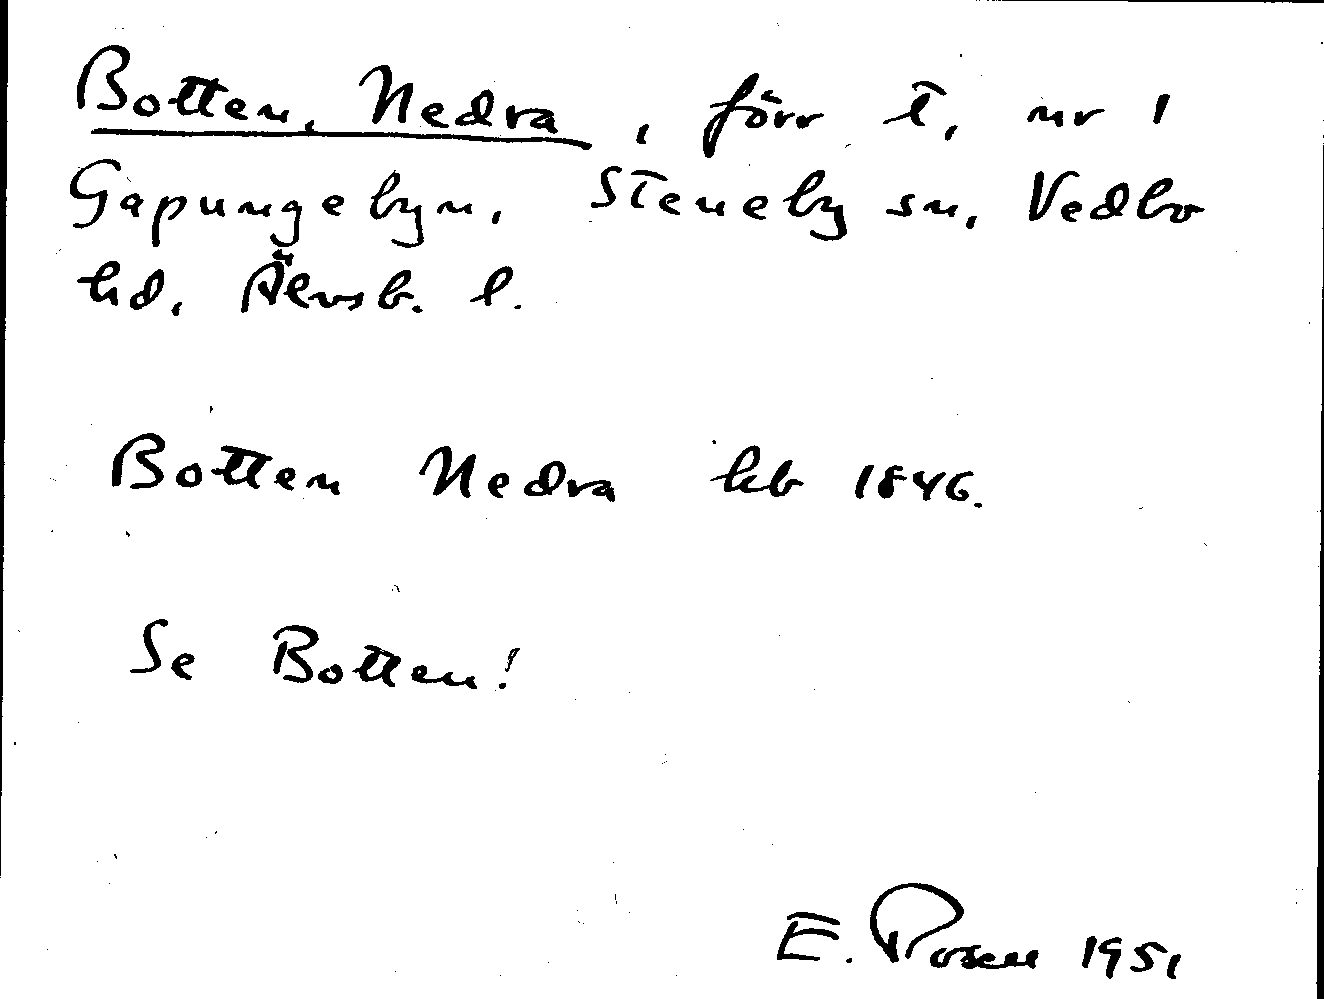 Botten, Nedra, förr t, nr 1
Gapungebyn, Steneby sn, Vedbo
hd, Älvsb. l.
Botten Nedra hb 1846.
Se Botten!
E. Rosen 1951